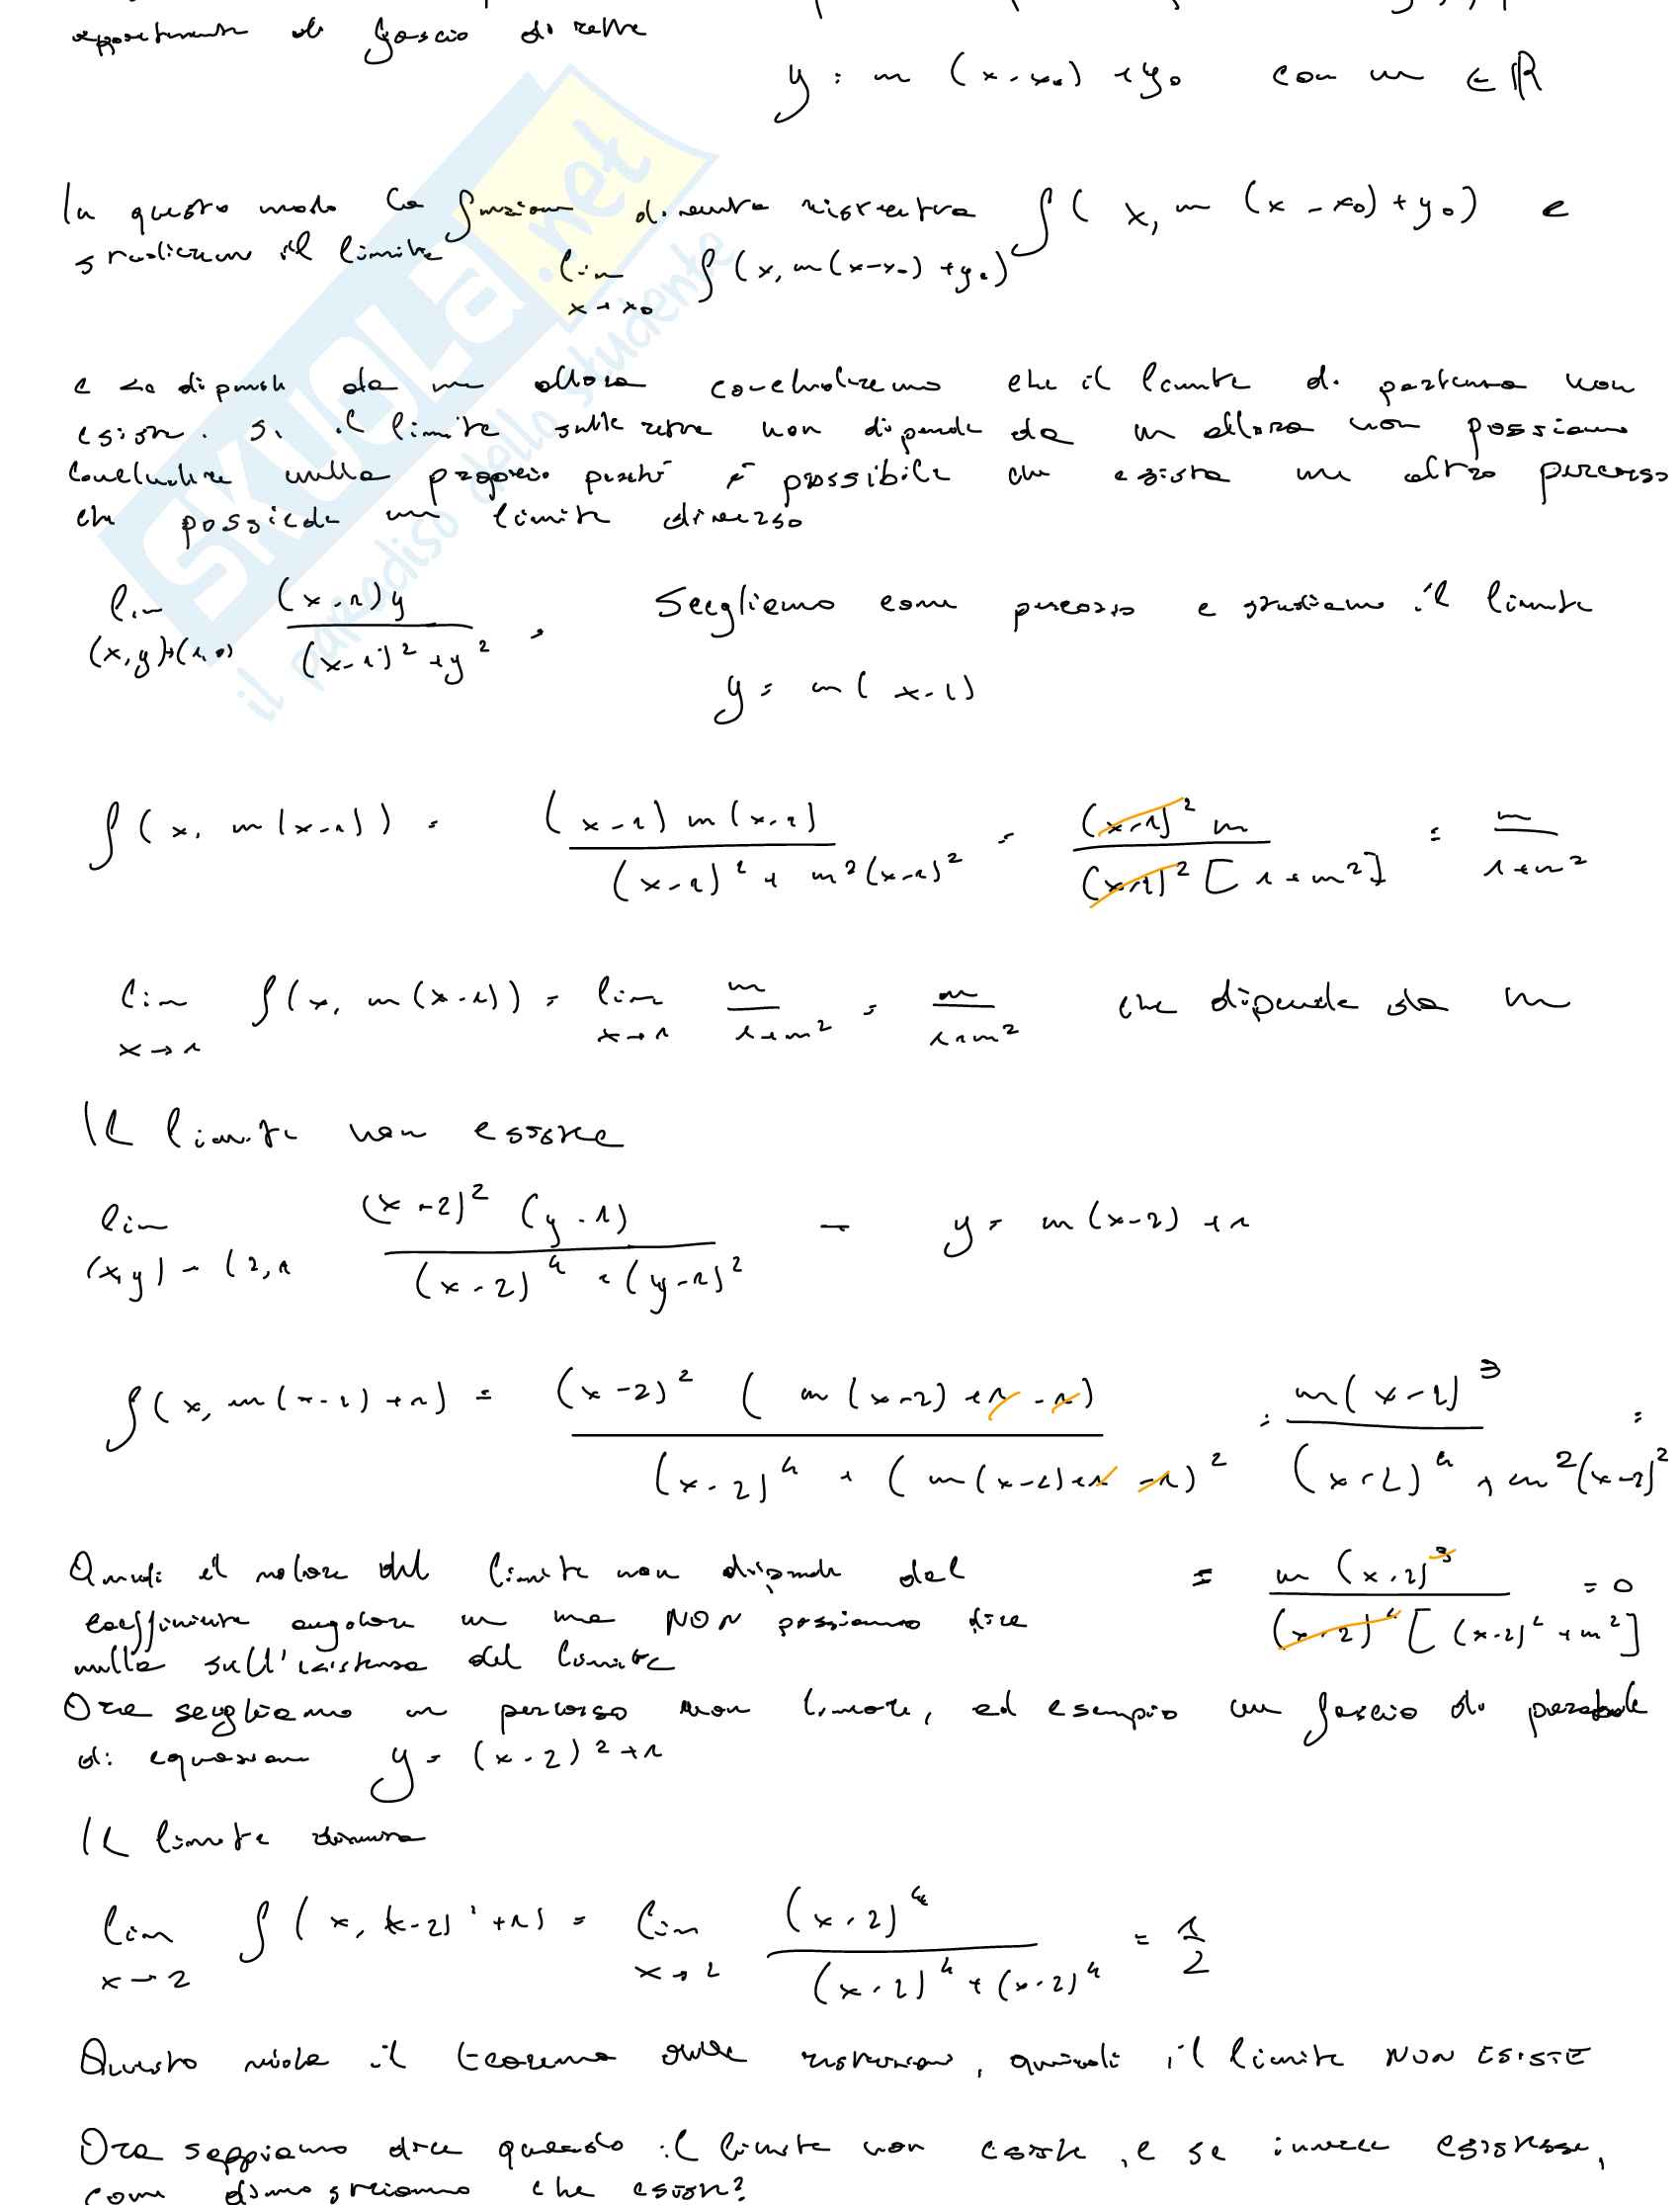 appartenente al fascio di rette
y = m (x-x₀) + y₀ con m ∈ ℝ
In questo modo la funzione diventa ristretta f(x, m(x-x₀)+y₀) e
studieremo il limite lim x→x₀ f(x, m(x-x₀)+y₀)
e se dipende da m allora concluderemo che il limite di partenza non
esiste. Se il limite sulle rette non dipende da m allora non possiamo
concludere nulla proprio perché è possibile che esista un altro percorso
che possiede un limite diverso
lim (x,y)→(1,0) (x-1)y / ((x-1)²+y²), Scegliamo come percorso e studiamo il limite
y = m(x-1)
f(x, m(x-1)) = (x-1)m(x-1) / ((x-1)² + m²(x-1)²) = (x-1)² m / ((x-1)² [1+m²]) = m / (1+m²)
lim x→1 f(x, m(x-1)) = lim x→1 m / (1+m²) = m / (1+m²) che dipende da m
Il limite non esiste
lim (x,y)→(2,1 (x-2)² (y-1) / ((x-2)⁴ + (y-1)²) → y = m(x-2)+1
f(x, m(x-2)+1) = (x-2)² (m(x-2)+1-1) / ((x-2)⁴ + (m(x-2)+1-1)²) = m(x-2)³ / ((x-2)⁴ + m²(x-2)²) =
= m(x-2)³ / ((x-2)² [(x-2)² + m²]) = 0
Quindi il valore del limite non dipende dal
coefficiente angolare m ma NON possiamo dire
nulla sull'esistenza del limite
Ora scegliamo un percorso non lineare, ad esempio un fascio di parabole
di equazione y = (x-2)²+1
Il limite diventa
lim x→2 f(x, (x-2)²+1) = lim x→2 (x-2)⁴ / ((x-2)⁴ + (x-2)⁴) = 1/2
Questo viola il teorema delle restrizioni, quindi il limite NON ESISTE
Ora sappiamo dire quando il limite non esiste, e se invece esistesse,
come dimostriamo che esiste?
SKUOLA.net
il paradiso dello studente